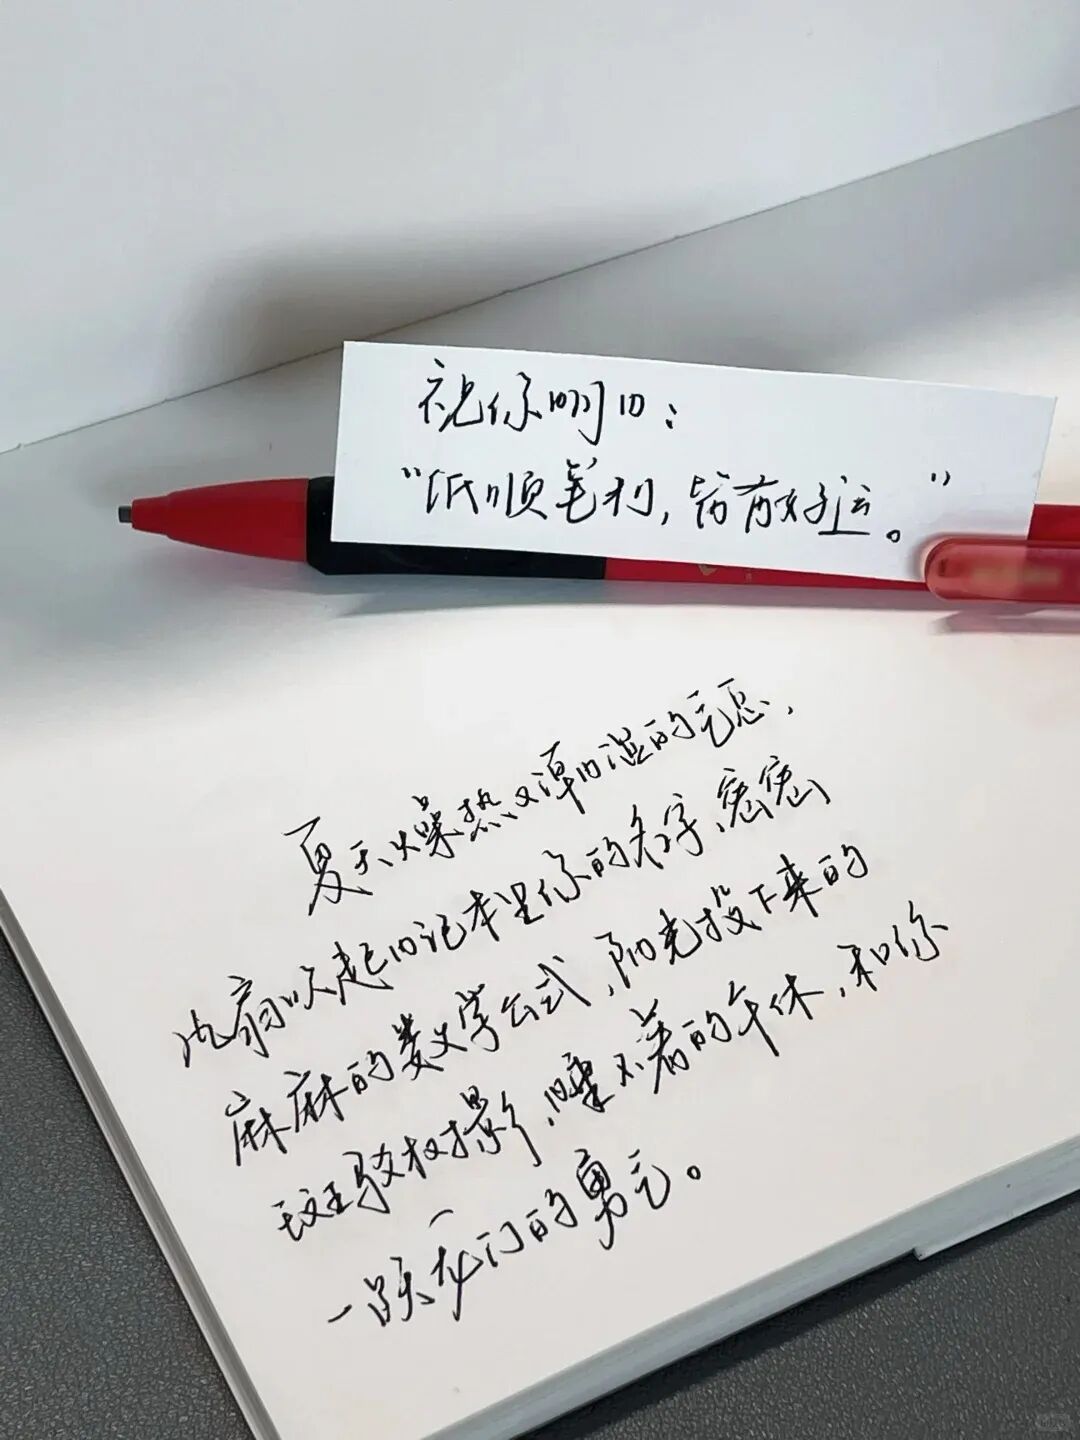 祝你明日:
“纸顺笔利,皆有好运。”
夏天燥热又潮湿的气息,
风扇吹起日记本里你的名字、密密
麻麻的数学公式,阳光投下来的
斑驳树影,睡不着的午休,和你
一跃龙门的勇气。